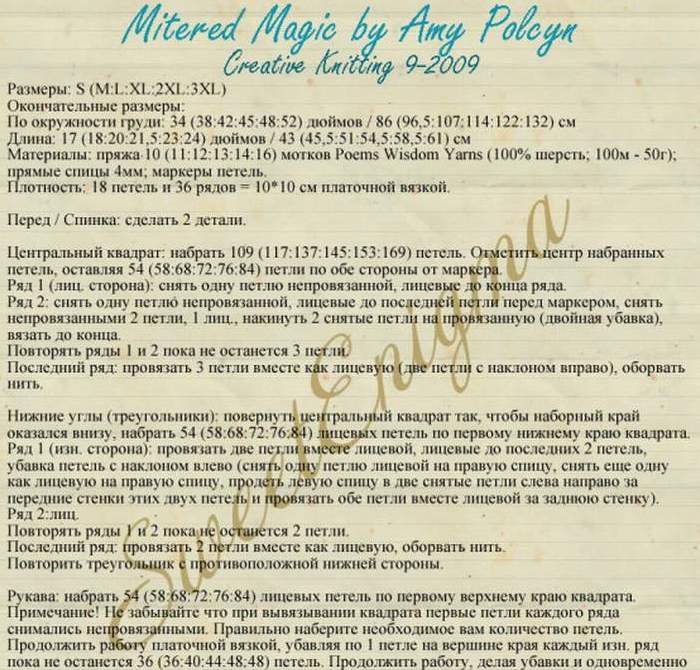 Mitered Magic by Amy Polcyn
Creative Knitting 9-2009
Размеры: S (M:L:XL:2XL:3XL)
Окончательные размеры:
По окружности груди: 34 (38:42:45:48:52) дюймов / 86 (96,5:107:114:122:132) см
Длина: 17 (18:20:21,5:23:24) дюймов / 43 (45,5:51:54,5:58,5:61) см
Материалы: пряжа 10 (11:12:13:14:16) мотков Poems Wisdom Yarns (100% шерсть; 100м - 50г);
прямые спицы 4мм; маркеры петель.
Плотность: 18 петель и 36 рядов = 10*10 см платочной вязкой.
Перед / Спинка: сделать 2 детали.
Центральный квадрат: набрать 109 (117:137:145:153:169) петель. Отметить центр набранных
петель, оставляя 54 (58:68:72:76:84) петли по обе стороны от маркера.
Ряд 1 (лиц. сторона): снять одну петлю непровязанной, лицевые до конца ряда.
Ряд 2: снять одну петлю непровязанной, лицевые до последней петли перед маркером, снять
непровязанными 2 петли, 1 лиц., накинуть 2 снятые петли на провязанную (двойная убавка),
вязать до конца.
Повторять ряды 1 и 2 пока не останется 3 петли.
Последний ряд: провязать 3 петли вместе как лицевую (две петли с наклоном вправо), оборвать
нить.
Нижние углы (треугольники): повернуть центральный квадрат так, чтобы наборный край
оказался внизу, набрать 54 (58:68:72:76:84) лицевых петель по первому нижнему краю квадрата.
Ряд 1 (изн. сторона): провязать две петли вместе лицевой, лицевые до последних 2 петель,
убавка петель с наклоном влево (снять одну петлю лицевой на правую спицу, снять еще одну
как лицевую на правую спицу, продеть левую спицу в две снятые петли слева направо за
передние стенки этих двух петель и провязать обе петли вместе лицевой за заднюю стенку).
Ряд 2:лиц.
Повторять ряды 1 и 2 пока не останется 2 петли.
Последний ряд: провязать 2 петли вместе как лицевую, оборвать нить.
Повторить треугольник с противоположной нижней стороны.
Рукава: набрать 54 (58:68:72:76:84) лицевых петель по первому верхнему краю квадрата.
Примечание! Не забывайте что при вывязывании квадрата первые петли каждого ряда
снимались непровязанными. Правильно наберите необходимое вам количество петель.
Продолжить работу платочной вязкой, убавляя по 1 петле на вершине края каждый изн. ряд
пока не останется 36 (36:40:44:48:48) петель. Продолжить работу, делая убавки и одновременно
SweetEnigma